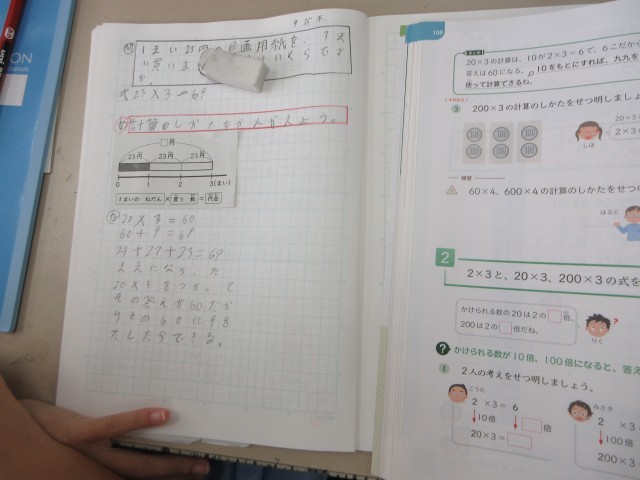 1まい23円の色画用紙を、3ま
い買いま
か。
式23×3=69
計算のしかたをかんがえよう。
□円
23円 23円 23円
0 1 2 3(まい)
1まいの ねだん × 買う 数 = 代金
20×3=60
60+9=69
23+23+23=69
20×3をつかって
その答えが60だか
9をその60に9を
たしたらできる。
108
20×3の計算は、10が2×3=6で、6こだから
答えは60になる。10をもとにすれば、九九を
使って計算できるね。
3 200×3の計算のしかたをせつ明しましょ
100 100 100
100 100 100
20×3
2×3=
しほ
練習
60×4、600×4の計算のしかたをせつ
はると
2
2×3と、20×3、200×3の式を
かけられる数の20は2の□倍、
200は2の□倍だね。
りく
? かけられる数が10倍、100倍になると、答え
1 2人の考えをせつ明しましょう。
こうた
2 ×3= 6
↓10倍 ↓□倍
20×3=□
みさき
2 ×3
↓100倍
200×3
ON